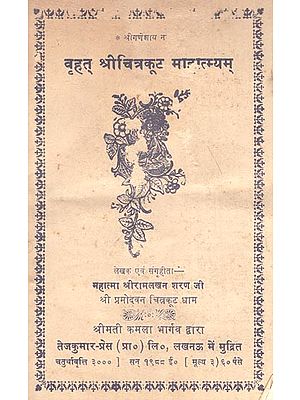 * श्रीगणेशाय न
वृहत् श्रीचित्रकूट माहात्म्यम्
लेखक एवं संगृहीता—
महात्मा श्रीरामलखन शरण जी
श्री प्रमोदवन चित्रकूट धाम
श्रीमती कमला भार्गव द्वारा
तेजकुमार-प्रेस (प्रा०) लि०, लखनऊ में मुद्रित
चतुर्थावृत्ति ३००० ] सन् १९८८ ई० [ मूल्य ३)६० पैसे